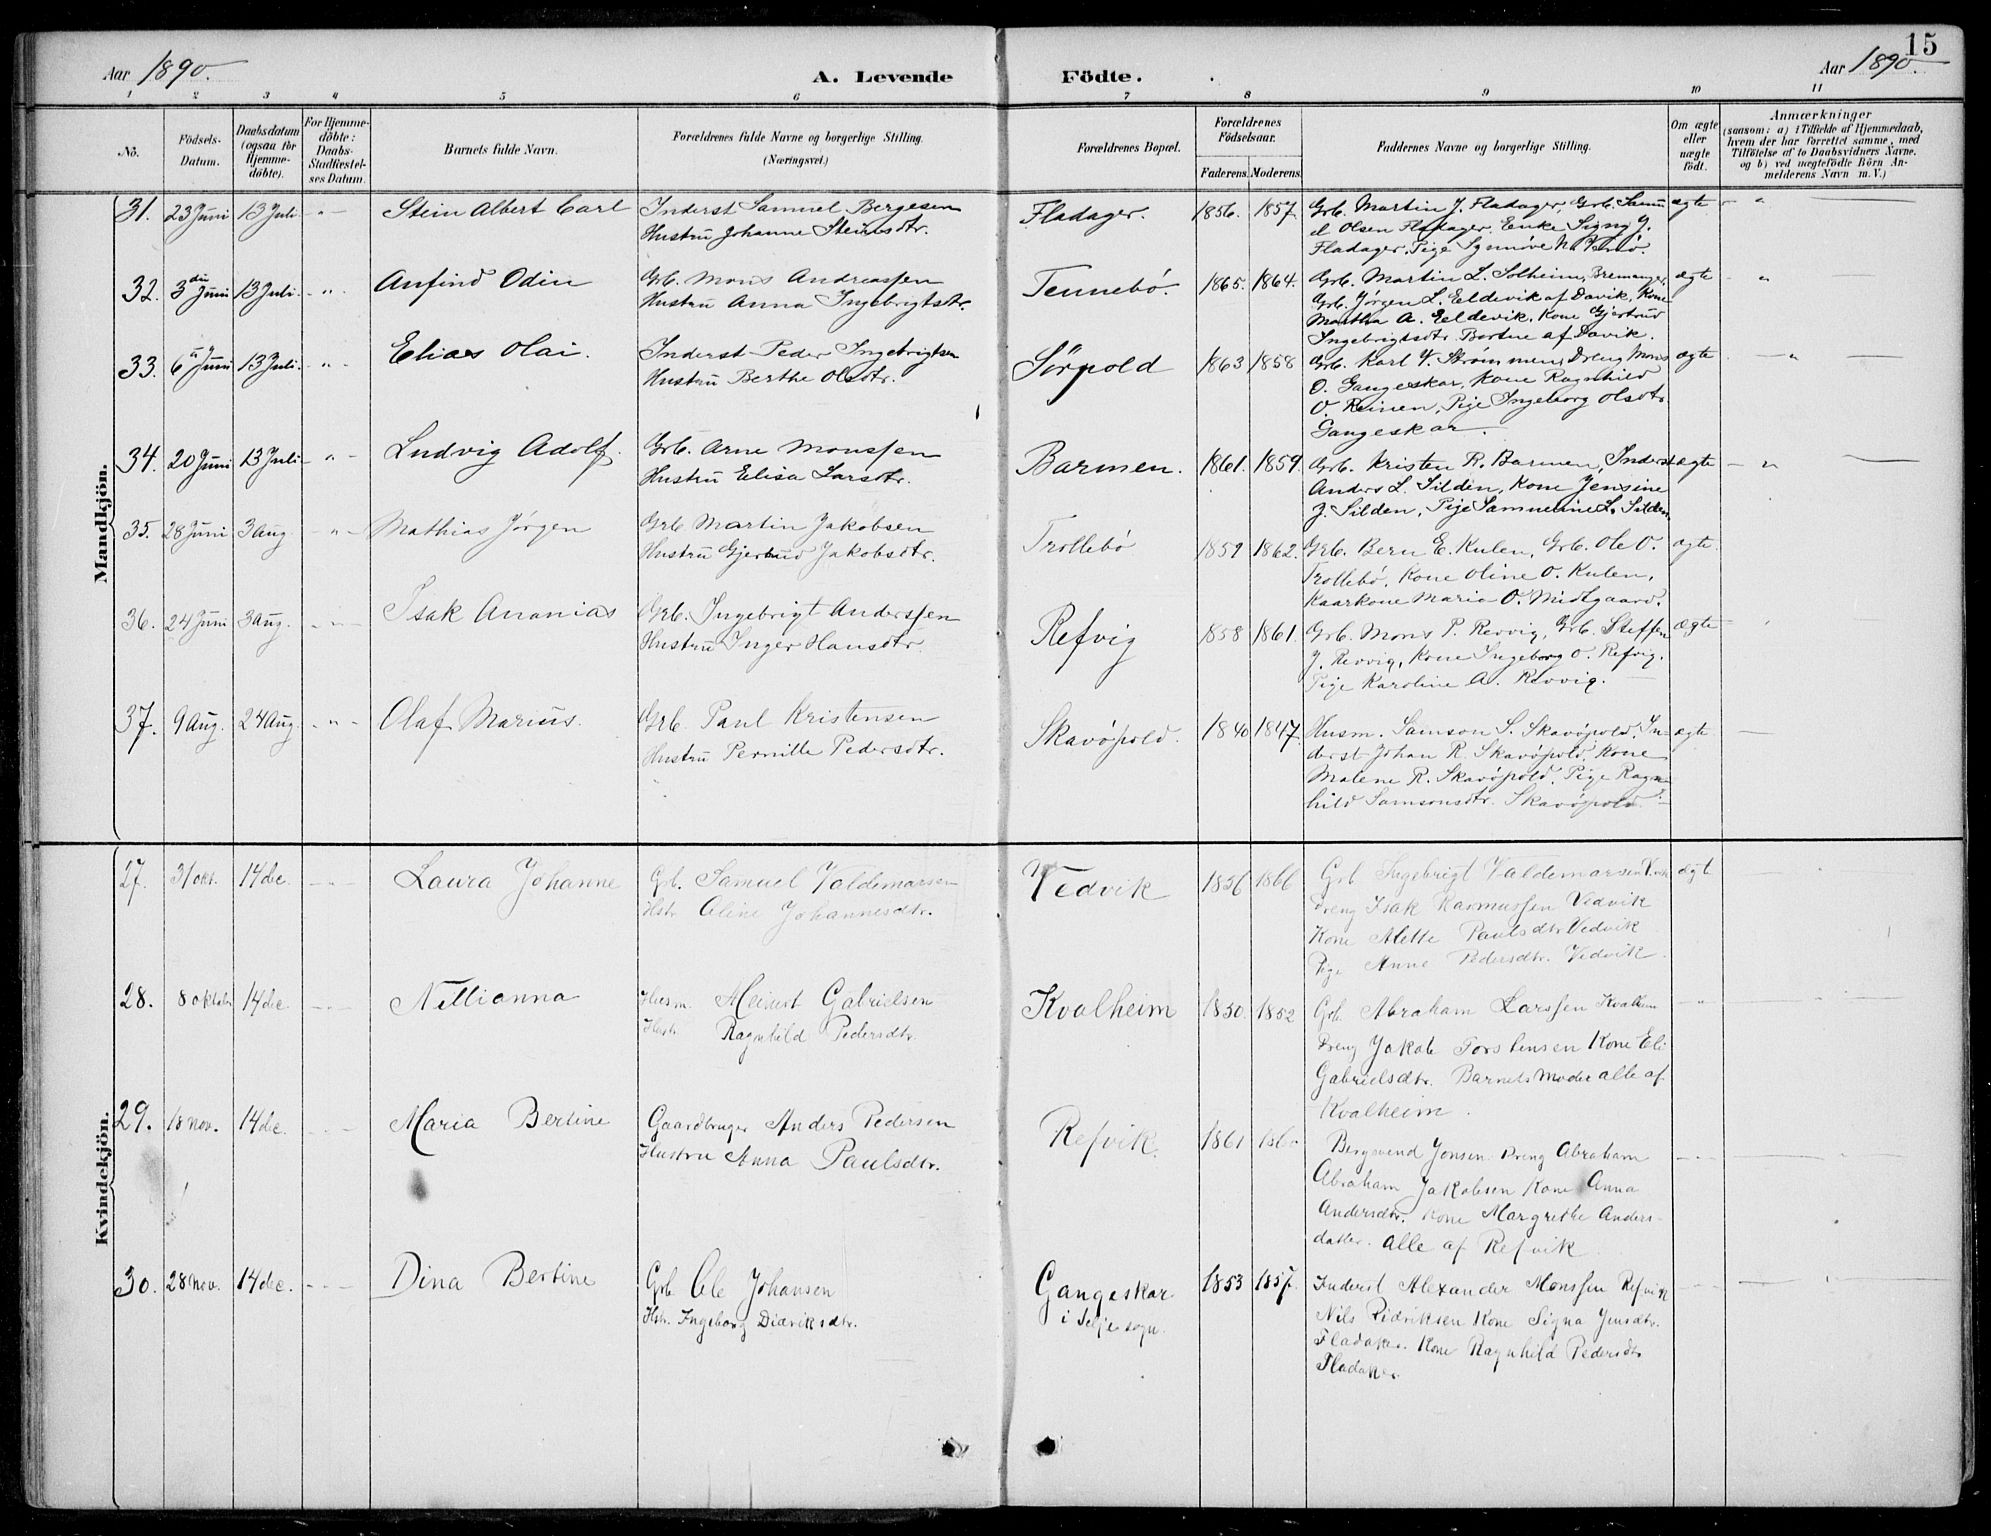 15
Aar 1890.
A. Levende
Födte.
Aar 1890.
1 2 3 4 5 6 7 8 9 10 11
No.
Födsels-
Datum.
Daabsdatum
(ogsaa for
Hjemme-
döbte).
For Hjemme-
döbte:
Daabs-
Stadfæstel-
ses Datum.
Barnets fulde Navn.
Forældrenes fulde Navne og borgerlige Stilling.
(Næringsvei.)
Forældrenes Bopæl.
Forældrenes
Födselsaar.
Faderens. Moderens.
Faddernes Navne og borgerlige Stilling.
Om ægte
eller
uægte
födt.
Anmærkninger
(saasom: a) i Tilfælde af Hjemmedaab,
hvem der har forrettet samme, med
Tilföielse af to Daabsvidners Navne.
og b) ved uægtefödte Börn An-
melderens Navn m. V.)
Mandkjön.
31. 23 Juni 13 Juli - " - Stein Albert Carl
Inderst Samuel Bergesen
Hustru Johanne Steinsdtr.
Fladager. 1856. 1857.
Grb. Martin J. Fladager, Grb. Samu
el Olsen Fladager, Enke Signy J.
Fladager, Pige Synnöve N.
ægte - "
32. 3die Juni 13 Juli. - " - Anfind Odin
Grb. Mons Andreassen
Hustru Anna Ingebrigtsdtr.
Tennebö. 1865. 1864.
Grb. Martin L. Solheim, Bremanger,
Grb. Jørgen L. Eeldevik af Davik, Kone
Martha A. Eeldevik, Kone Gjertrud
Ingebrigtsdtr. Bortne af Davik.
ægte - "
33. 6 Juni 13 Juli. - " - Elias Olai.
Inderst Peder Ingebrigtsen
Hustru Berthe Olsdtr.
Sörpold 1863 1858
Grb. Karl V. Strømmen, Dreng Mons
O. Gangeskar, Kone Ragnhild
O. Reinen, Pige Ingeborg Olsdtr.
Gangeskar.
ægte - "
34. 20 Juni 13 Juli - " - Ludvig Adolf.
Grb. Arne Monssen
Hustru Elisa Larsdtr.
Barmen. 1861. 1859.
Grb. Kristen R. Barmen, Inderst
Anders L. Silden, Kone Jensine
J. Silden, Pige Samueline L. Silden.
ægte - "
35. 28 Juni 3 Aug. - " - Mathias Jørgen
Grb Martin Jakobsen
Hustru Gjertrud Jakobsdtr.
Trollebö 1859 1862.
Grb. Bern E. Kulen, Grb. Ole O.
Trollebö, Kone Oline O. Kulen,
Kaarkone Maria O. Midtgaard.
ægte.
36. 24 Juni 3 Aug. - " - Isak Ananias
Grb. Ingebrigt Anderssen
Hustru Inger Hansdtr.
Refvig 1858 1861.
Grb. Mons P. Revvig, Grb. Steffen
J. Revvig, Kone Ingeborg O. Refvig.
Pige Karoline A. Revvig.
ægte
37. 9 Aug. 24 Aug. - " - Olaf Marius.
Grb. Paul Kristensen
Hustru Pernille Pedersdtr.
Skavöpold. 1840 1847.
Husm. Samson S. Skavöpold, In-
derst Johan R. Skavöpold, Kone
Malene R. Skavöpold, Pige Ragn-
hild Samsonsdtr. Skavöpold.
ægte
Kvindekjön.
27. 31 okt. 14 dec. Laura Johanne
Grb. Samuel Valdemarsen
Hstr Oline Johannesdtr.
Vedvik 1856 1866
Grb Ingebrigt Valdemarsen
Dreng Isak Rasmussen Vedvik
Kone Alette Paulsdtr Vedvik
Pige Anne Pedersdtr. Vedvik.
ægt
28. 8 oktober 14 dec. Nellianna
Husm. Meinert Gabrielsen
Hstr. Ragnhild Pedersdtr.
Kvalheim 1850. 1852
Grb. Abraham Larssen Kvalheim
Dreng Jakob Torstensen Kone Eli
Gabrielsdtr. Barnets Moder alle af
Kvalheim.
29. 18 nov. 14 dec. Maria Bertine
Gaardbruger Anders Pedersen
Hustru Anna Paulsdtr.
Refvik. 1861
Bergsvend Jonsen. Dreng Abraham
Abraham Jakobsen Kone Anna
Andersdtr. Kone Margrethe Anders-
datter. alle af Refvik
30. 28 nov. 14 dec. Dina Bertine
Grb Ole Johansen
Hstr. Ingeborg Didriksdtr.
Gangeskar
i Selje sogn.
1853 1857.
Inderst Alexander Monssen Refvik
Nils Didriksen Kone Signa Jensdtr.
Fladaker. Kone Ragnhild Pedersdtr
Fladaker.